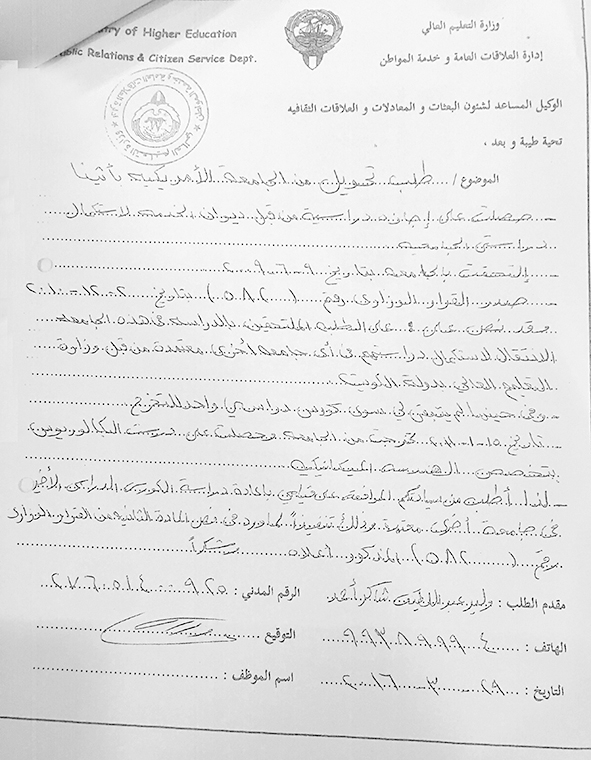 Ministry of Higher Education
Public Relations & Citizen Service Dept.
وزارة التعليم العالي
إدارة العلاقات العامة و خدمة المواطن
الوكيل المساعد لشئون البعثات و المعادلات و العلاقات الثقافيه
تحية طيبة و بعد ،
الموضوع / طلب تحويل من الجامعة الأمريكية بأثينا
- حصلت على إجازه دراسية من قبل ديوان الخدمه لاستكمال
دراستي الجامعيه
- إلتحقت بالجامعه بتاريخ ٩-٦-٢٠٠٩
- صدر القرار الوزاري رقم (٥٨٢) بتاريخ ٢-١٢-٢٠١٠
وقد نص على الطلبه الملتحقين بالدراسه في هذه الجامعه
الانتقال لاستكمال دراستهم في أي جامعه أخرى معتمدة من قبل وزارة
التعليم العالي بدولة الكويت
- وفي حينها لم يتبقى لي سوى كورس دراسي واحد للتخرج
- تاريخ ١٥-١-٢٠١١ تخرجت من الجامعه وحصلت على البكالوريوس
بتخصص الهندسه الميكانيكيه
- لذا أطلب من سيادتكم الموافقه على بإعادة دراسة الكورس الدراسي الأخير
في جامعة أخرى معتمدة وذلك تنفيذاً لما ورد في نص المادة الثانيه من القرار الوزاري
رقم (٥٨٢) المذكور أعلاه شكراً
مقدم الطلب : وليد عبداللطيف شاكر أحمد الرقم المدني :
الهاتف : ٩٩٣٨٩٩٩٤ التوقيع
التاريخ : ٢٩-٣-٢٠١٦ اسم الموظف :